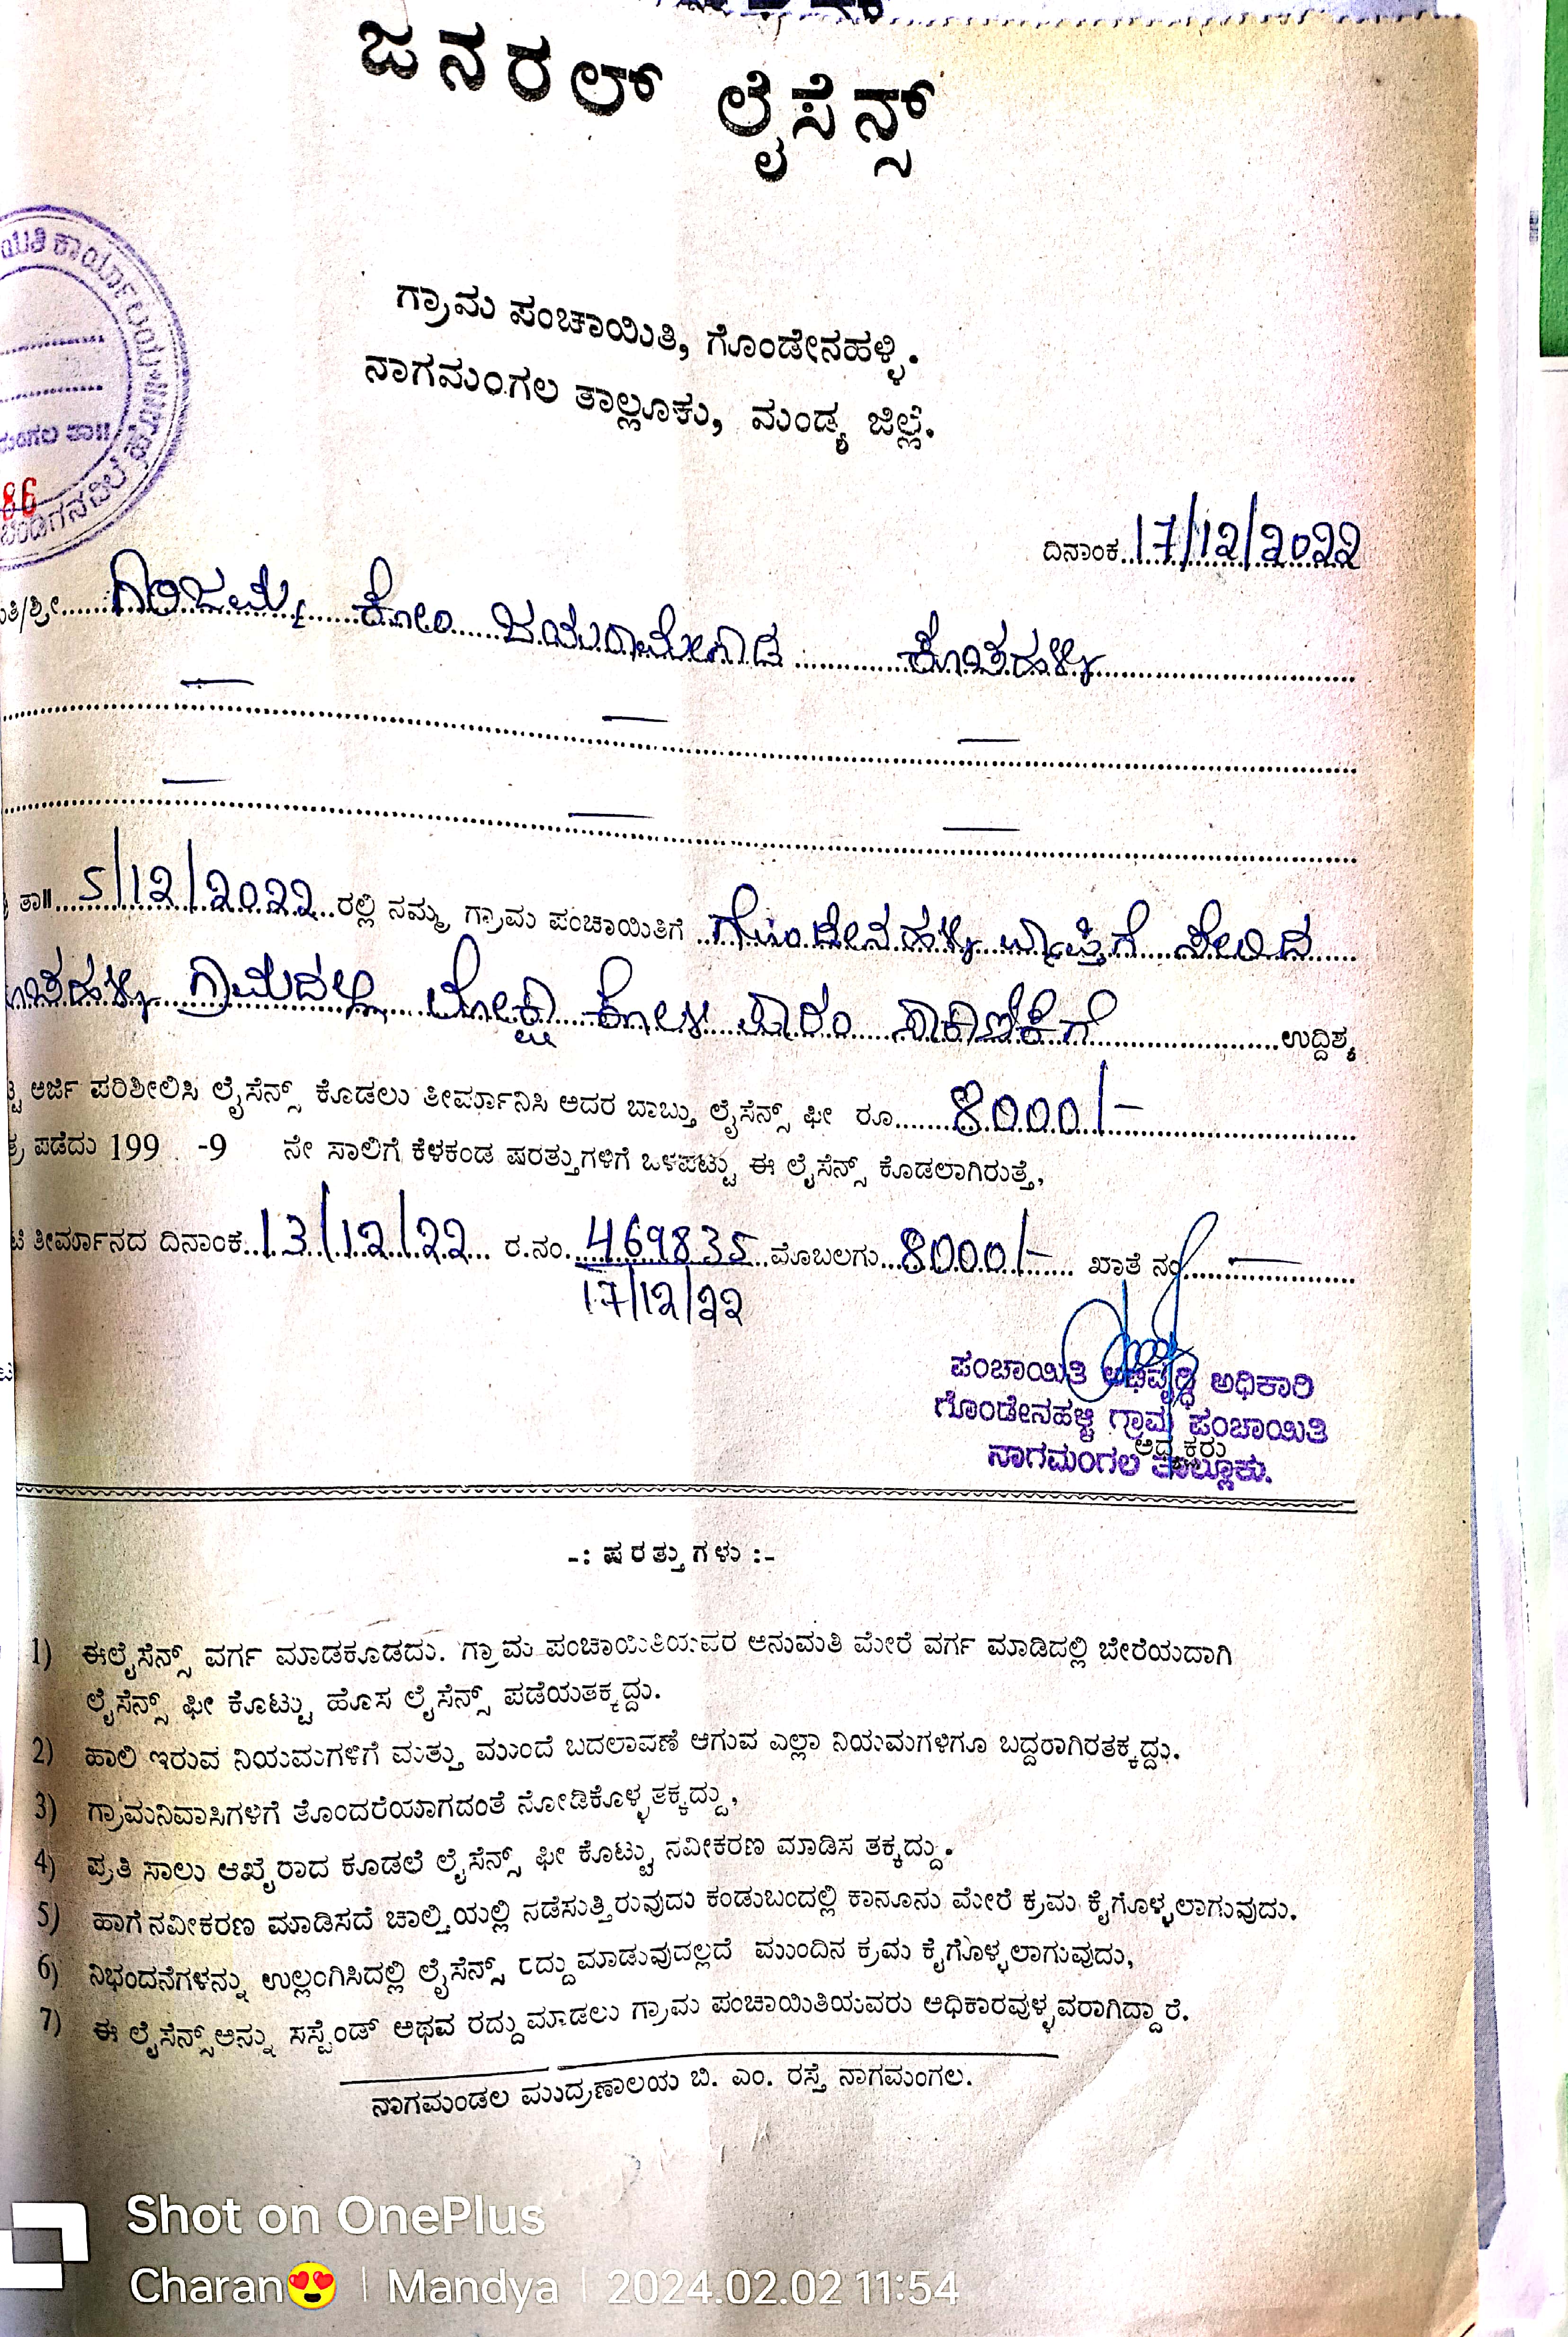 ಜನರಲ್ ಲೈಸೆನ್ಸ್
ಗ್ರಾಮ ಪಂಚಾಯಿತಿ, ಗೊಂಡೇನಹಳ್ಳಿ.
ನಾಗಮಂಗಲ ತಾಲ್ಲೂಕು, ಮಂಡ್ಯ ಜಿಲ್ಲೆ.
86
ದಿನಾಂಕ..17/12/2022
ತಿ/ಶ್ರೀ......ಗಿರಿಜಮ್ಮ ಕೋಂ ಜಯರಾಮೇಗೌಡ ಕೊಂತಹಳ್ಳಿ
ತಾ॥....5/12/2022..ರಲ್ಲಿ ನಮ್ಮ ಗ್ರಾಮ ಪಂಚಾಯಿತಿಗೆ ಗೊಂದೇನಹಳ್ಳಿ ವ್ಯಾಪ್ತಿಗೆ ಸೇರಿದ
ಗ್ರಾಮದಲ್ಲಿ ಕೋಳಿ ಫಾರಂ ಸಾಕಾಣಿಕೆಗೆ ಉದ್ದಿಶ್ಯ
ಅರ್ಜಿ ಪರಿಶೀಲಿಸಿ ಲೈಸೆನ್ಸ್ ಕೊಡಲು ತೀರ್ಮಾನಿಸಿ ಅದರ ಬಾಬ್ತು ಲೈಸೆನ್ಸ್ ಫೀ ರೂ.......8000/-
ಪಡೆದು 199 -9 ನೇ ಸಾಲಿಗೆ ಕೆಳಕಂಡ ಷರತ್ತುಗಳಿಗೆ ಒಳಪಟ್ಟು ಈ ಲೈಸೆನ್ಸ್ ಕೊಡಲಾಗಿರುತ್ತೆ,
ತೀರ್ಮಾನದ ದಿನಾಂಕ..13/12/22... ರ.ನಂ. 469835 ಮೊಬಲಗು...8000/-..... ಖಾತೆ ನಂ
17/12/22
ಪಂಚಾಯಿತಿ ಅಭಿವೃದ್ಧಿ ಅಧಿಕಾರಿ
ಗೊಂಡೇನಹಳ್ಳಿ ಗ್ರಾಮ ಪಂಚಾಯಿತಿ
ಅಧ್ಯಕ್ಷರು
ನಾಗಮಂಗಲ ತಾಲ್ಲೂಕು.
-: ಷರತ್ತುಗಳು :-
1) ಈಲೈಸೆನ್ಸ್ ವರ್ಗ ಮಾಡಕೂಡದು. ಗ್ರಾಮ ಪಂಚಾಯಿತಿಯವರ ಅನುಮತಿ ಮೇರೆ ವರ್ಗ ಮಾಡಿದಲ್ಲಿ ಬೇರೆಯದಾಗಿ
ಲೈಸೆನ್ಸ್ ಫೀ ಕೊಟ್ಟು ಹೊಸ ಲೈಸೆನ್ಸ್ ಪಡೆಯತಕ್ಕದ್ದು.
2) ಹಾಲಿ ಇರುವ ನಿಯಮಗಳಿಗೆ ಮತ್ತು ಮುಂದೆ ಬದಲಾವಣೆ ಆಗುವ ಎಲ್ಲಾ ನಿಯಮಗಳಿಗೂ ಬದ್ದರಾಗಿರತಕ್ಕದ್ದು.
3) ಗ್ರಾಮನಿವಾಸಿಗಳಿಗೆ ತೊಂದರೆಯಾಗದಂತೆ ನೋಡಿಕೊಳ್ಳತಕ್ಕದ್ದು,
4) ಪ್ರತಿ ಸಾಲು ಆಖೈರಾದ ಕೂಡಲೆ ಲೈಸೆನ್ಸ್ ಫೀ ಕೊಟ್ಟು ನವೀಕರಣ ಮಾಡಿಸ ತಕ್ಕದ್ದು.
5) ಹಾಗೆ ನವೀಕರಣ ಮಾಡಿಸದೆ ಚಾಲ್ತಿಯಲ್ಲಿ ನಡೆಸುತ್ತಿರುವುದು ಕಂಡುಬಂದಲ್ಲಿ ಕಾನೂನು ಮೇರೆ ಕ್ರಮ ಕೈಗೊಳ್ಳಲಾಗುವುದು.
6) ನಿಭಂದನೆಗಳನ್ನು ಉಲ್ಲಂಗಿಸಿದಲ್ಲಿ ಲೈಸೆನ್ಸ್ ರದ್ದುಮಾಡುವುದಲ್ಲದೆ ಮುಂದಿನ ಕ್ರಮ ಕೈಗೊಳ್ಳಲಾಗುವುದು,
7) ಈ ಲೈಸೆನ್ಸ್‌ಅನ್ನು ಸಸ್ಪೆಂಡ್ ಅಥವ ರದ್ದುಮಾಡಲು ಗ್ರಾಮ ಪಂಚಾಯಿತಿಯವರು ಅಧಿಕಾರವುಳ್ಳವರಾಗಿದ್ದಾರೆ.
ನಾಗಮಂಡಲ ಮುದ್ರಣಾಲಯ ಬಿ. ಎಂ. ರಸ್ತೆ ನಾಗಮಂಗಲ.
Shot on OnePlus
Charan😍 | Mandya | 2024.02.02 11:54